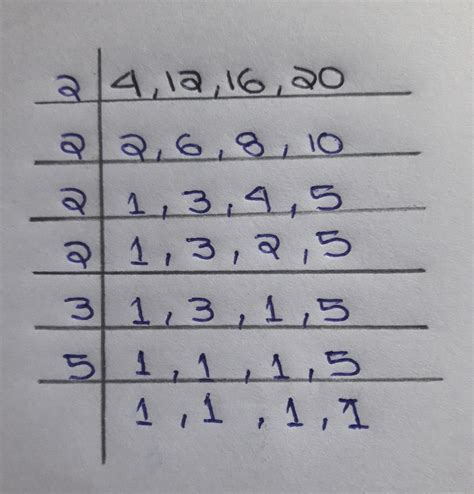 2 4, 12, 16, 20
2 2, 6, 8, 10
2 1, 3, 4, 5
2 1, 3, 2, 5
3 1, 3, 1, 5
5 1, 1, 1, 5
1, 1, 1, 1